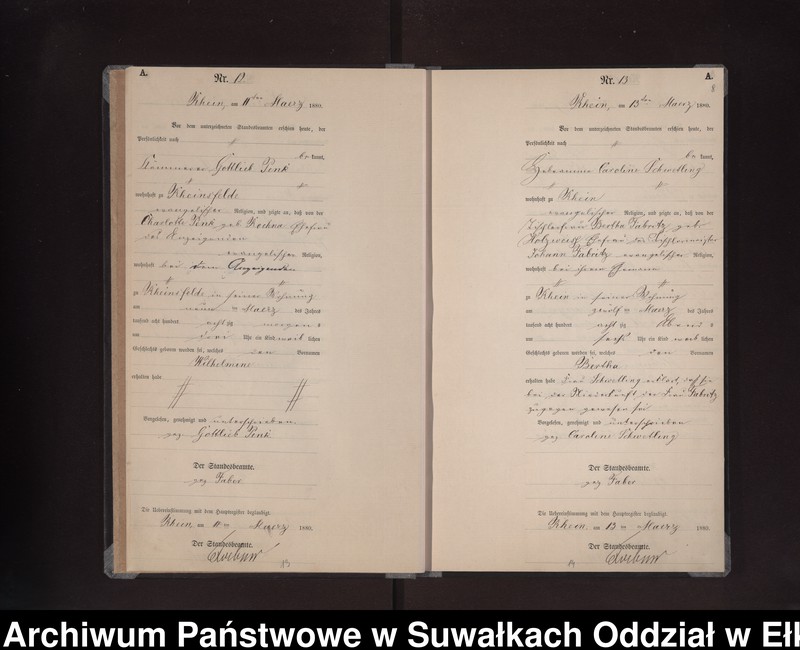 A.
Nr. 12.
Rhein, am 11ten Maerz 1880.
Vor dem unterzeichneten Standesbeamten erschien heute, der
Persönlichkeit nach
be kannt,
Gottlieb Penk
wohnhaft zu Rheinsfelde
evangelischer Religion, und zeigte an, daß von der
Charlotte Penk geb. Ehefrau
des Anzeigenden
evangelischer Religion,
wohnhaft bei dem Anzeigenden
zu Rheinsfelde in seiner Wohnung
am neun ten Maerz des Jahres
tausend acht hundert achtzig morgens
um Uhr ein Kind weib lichen
Geschlechts geboren worden sei, welches den Vornamen
Wilhelmine
erhalten habe
Vorgelesen, genehmigt und unterschrieben
gez. Gottlieb Penk
Der Standesbeamte.
gez. Faber
Die Uebereinstimmung mit dem Hauptregister beglaubigt.
Rhein am 11ten Maerz 1880.
Der Standesbeamte.
A.
8
Nr. 13
Rhein, am 13ten Maerz 1880.
Vor dem unterzeichneten Standesbeamten erschien heute, der
Persönlichkeit nach
be kannt,
Hebeamme Caroline Schwetling
wohnhaft zu Rhein
evangelischer Religion, und zeigte an, daß von der
Bertha Fabritz geb.
Ehefrau des Tischlermeister
Johann Fabritz evangelischer Religion,
wohnhaft bei ihrem Ehemann
zu Rhein in seiner Wohnung
am zwölf ten Maerz des Jahres
tausend acht hundert achtzig Abends
um sechs Uhr ein Kind weib lichen
Geschlechts geboren worden sei, welches den Vornamen
Bertha
erhalten habe. Frau Schwetling erklärt, daß sie
bei der Niederkunft der Frau Fabritz
zugegen gewesen sei
Vorgelesen, genehmigt und unterschrieben
gez. Caroline Schwetling
Der Standesbeamte.
gez. Faber
Die Uebereinstimmung mit dem Hauptregister beglaubigt.
Rhein, am 13ten Maerz 1880.
Der Standesbeamte.
Archiwum Państwowe w Suwałkach Oddział w Ełk